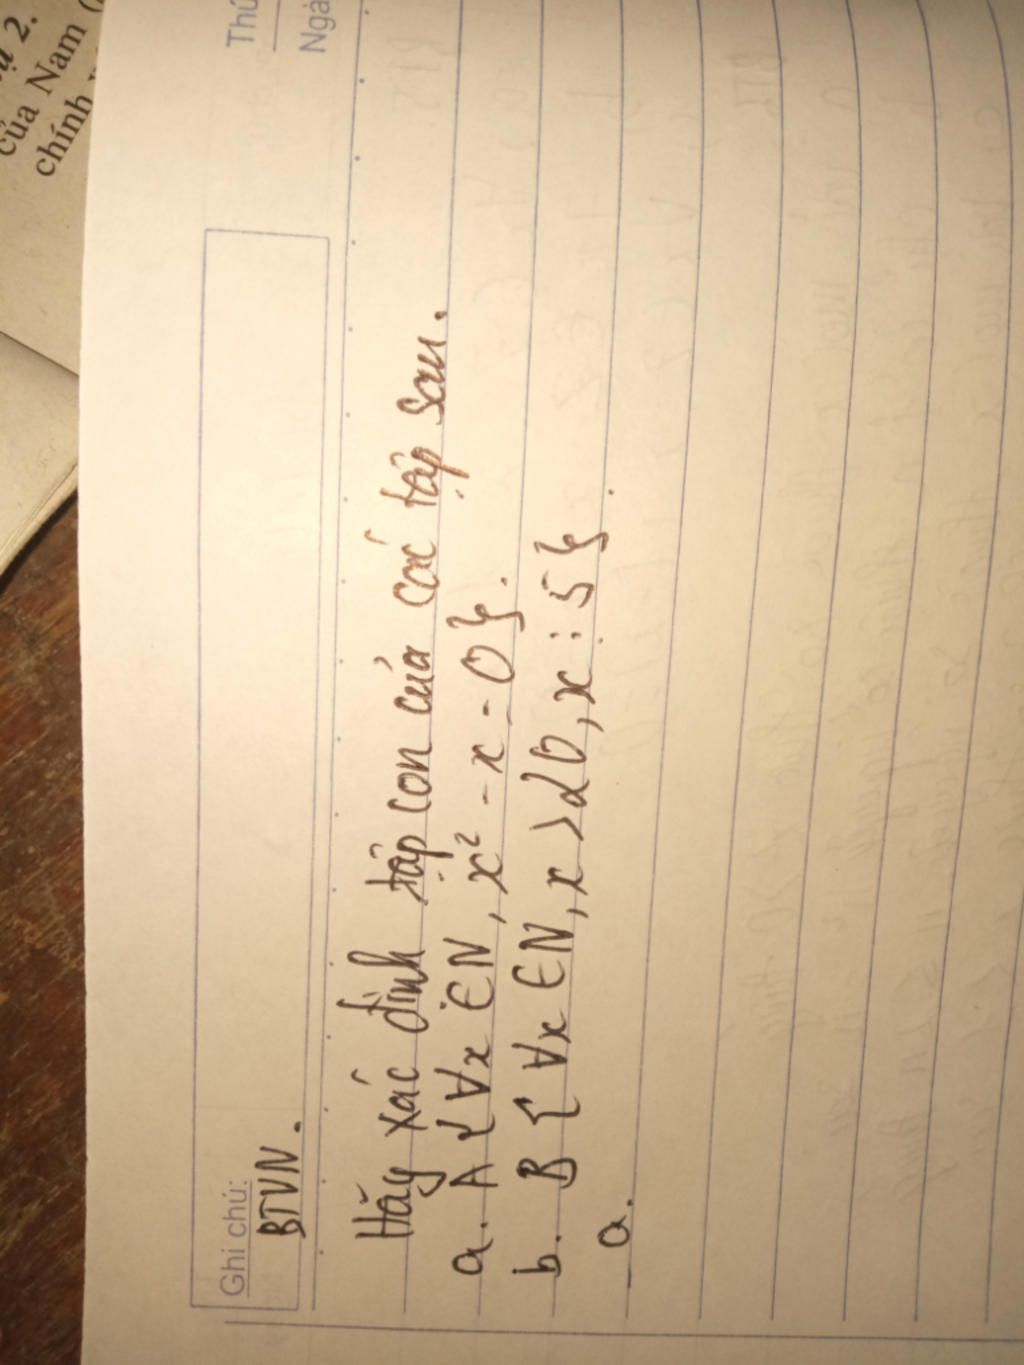 ụ 2.
của Nam (
chính
Thứ
Ngà
Ghi chú:
BTVN.
Hãy xác định tập con của các tập sau.
a. A {∀x ∈ N, x² - x = 0}.
b. B {∀x ∈ N, x > 20, x ⋮ 5}.
a.